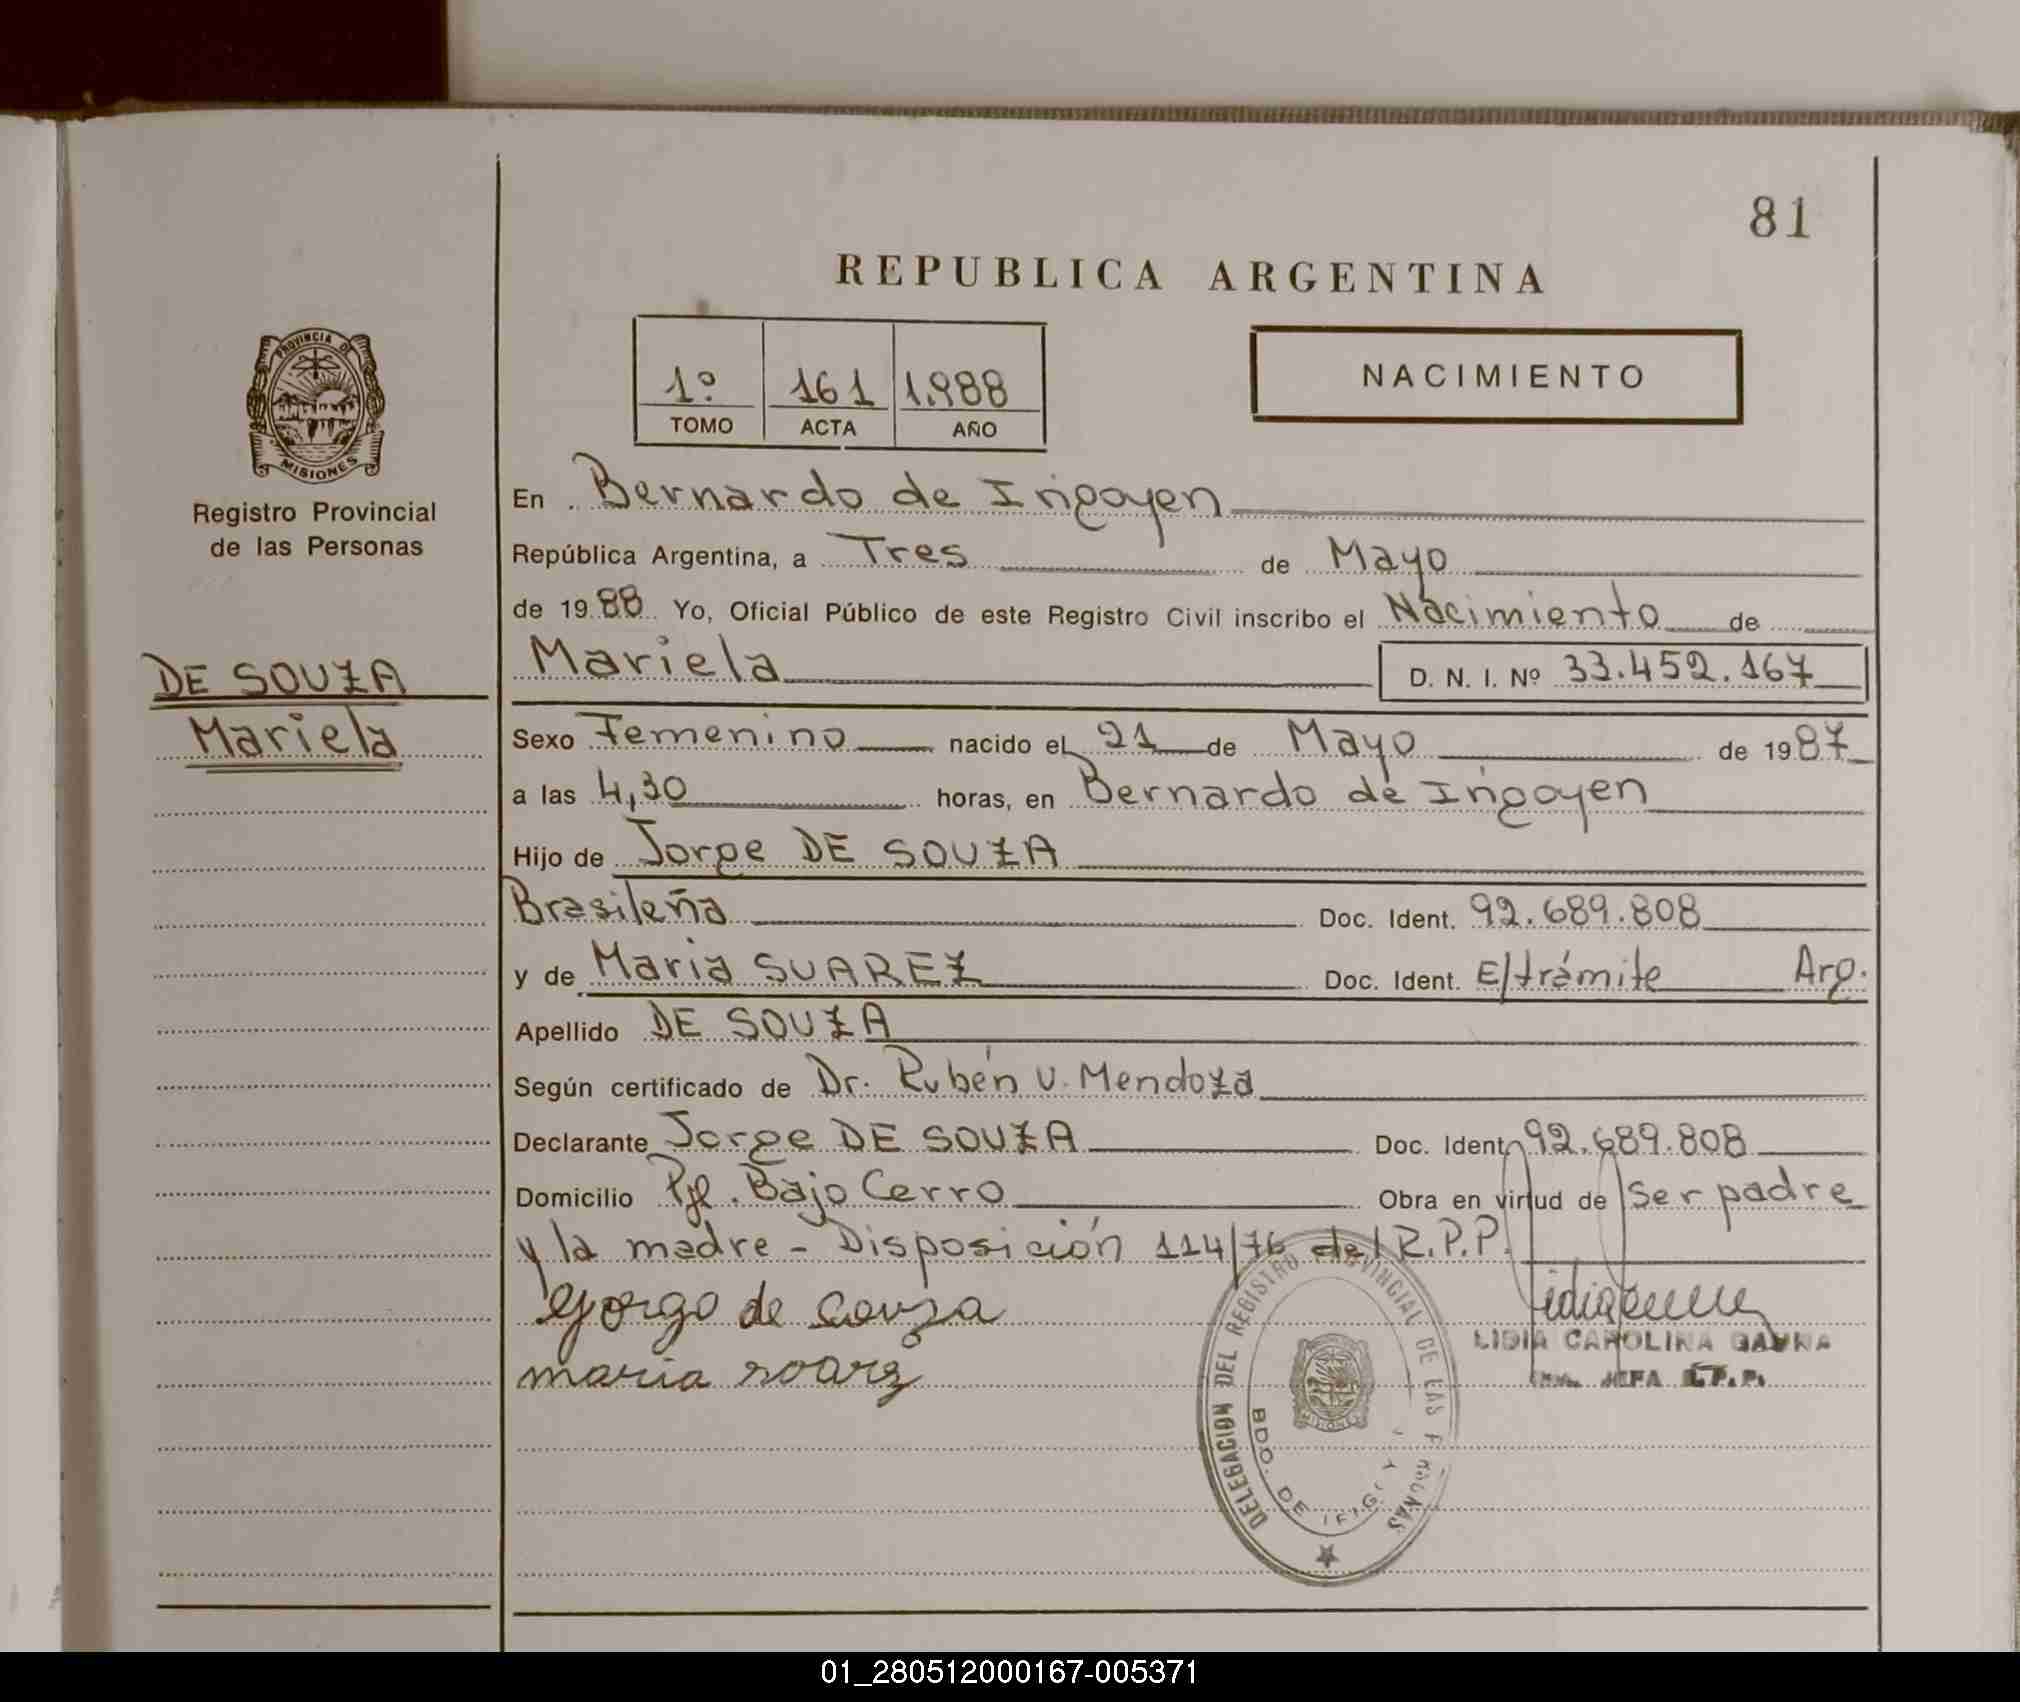 81
REPUBLICA ARGENTINA
1º 161 1.988
TOMO ACTA AÑO
NACIMIENTO
PROVINCIA DE
MISIONES
Registro Provincial
de las Personas
DE SOUZA
Mariela
En Bernardo de Irigoyen
República Argentina, a Tres de Mayo
de 1988 Yo, Oficial Público de este Registro Civil inscribo el Nacimiento de
Mariela D. N. I. Nº 33.452.167
Sexo Femenino nacido el 21 de Mayo de 1987
a las 4,30 horas, en Bernardo de Irigoyen
Hijo de Jorge DE SOUZA
Brasileña Doc. Ident. 92.689.808
y de Maria SUAREZ Doc. Ident. E/trámite Arg.
Apellido DE SOUZA
Según certificado de Dr. Rubén V. Mendoza
Declarante Jorge DE SOUZA Doc. Ident. 92.689.808
Domicilio Pje. Bajo Cerro Obra en virtud de ser padre
y la madre - Disposición 114/76 del R.P.P.
gorgo de souza
maria soarz
LIDIA CAROLINA
JEFA
DELEGACION DEL REGISTRO PROVINCIAL DE LAS PERSONAS
BDO. DE IRIGOYEN
MISIONES
01_280512000167-005371